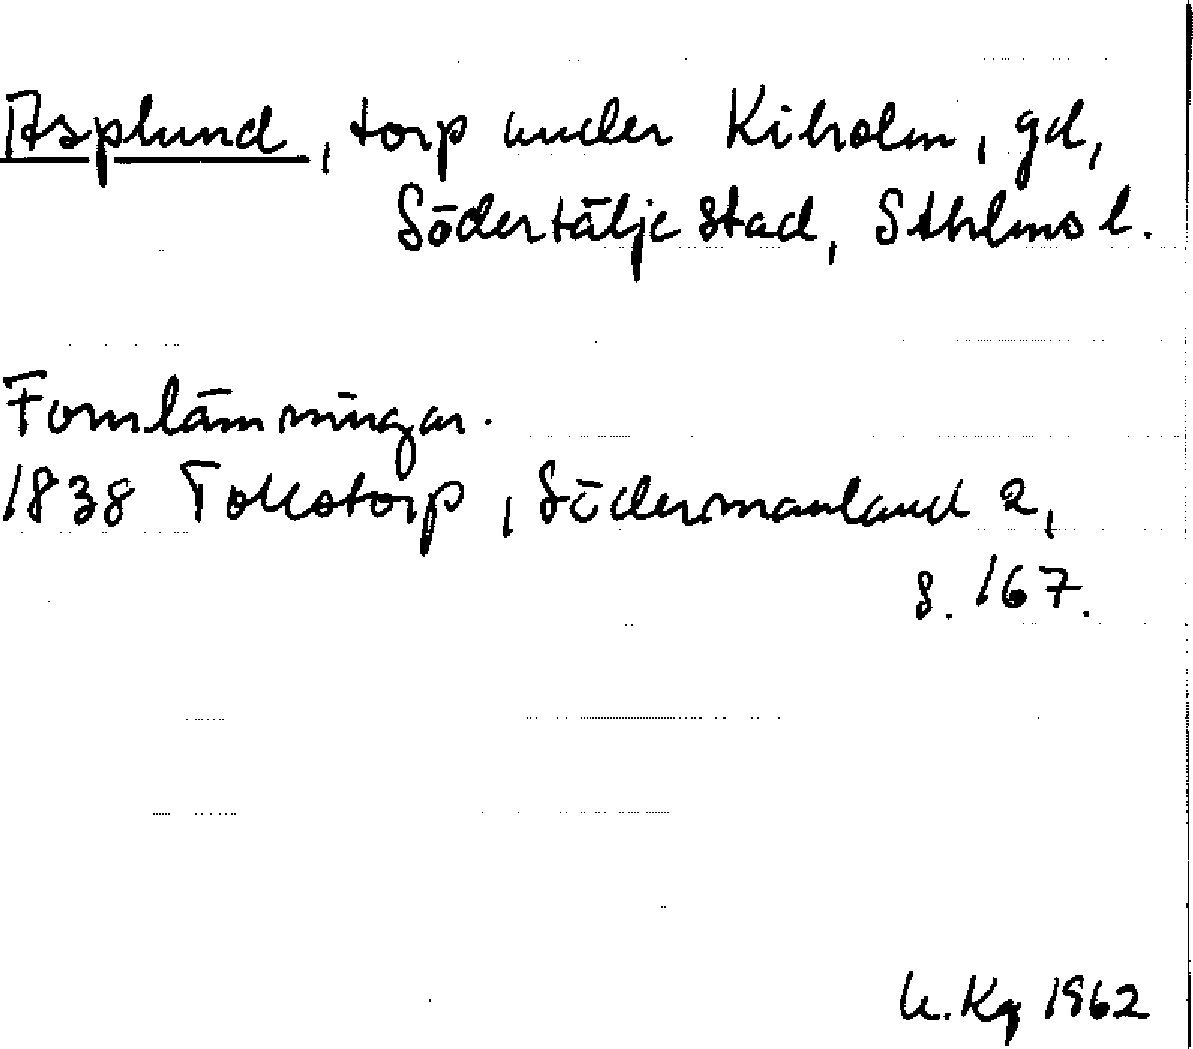 Asplund, torp under Kiholm, gd,
Södertälje stad, Sthlms l.
Fornlämningar.
1838 Tollstorp, Södermanland 2,
s. 167.
1962